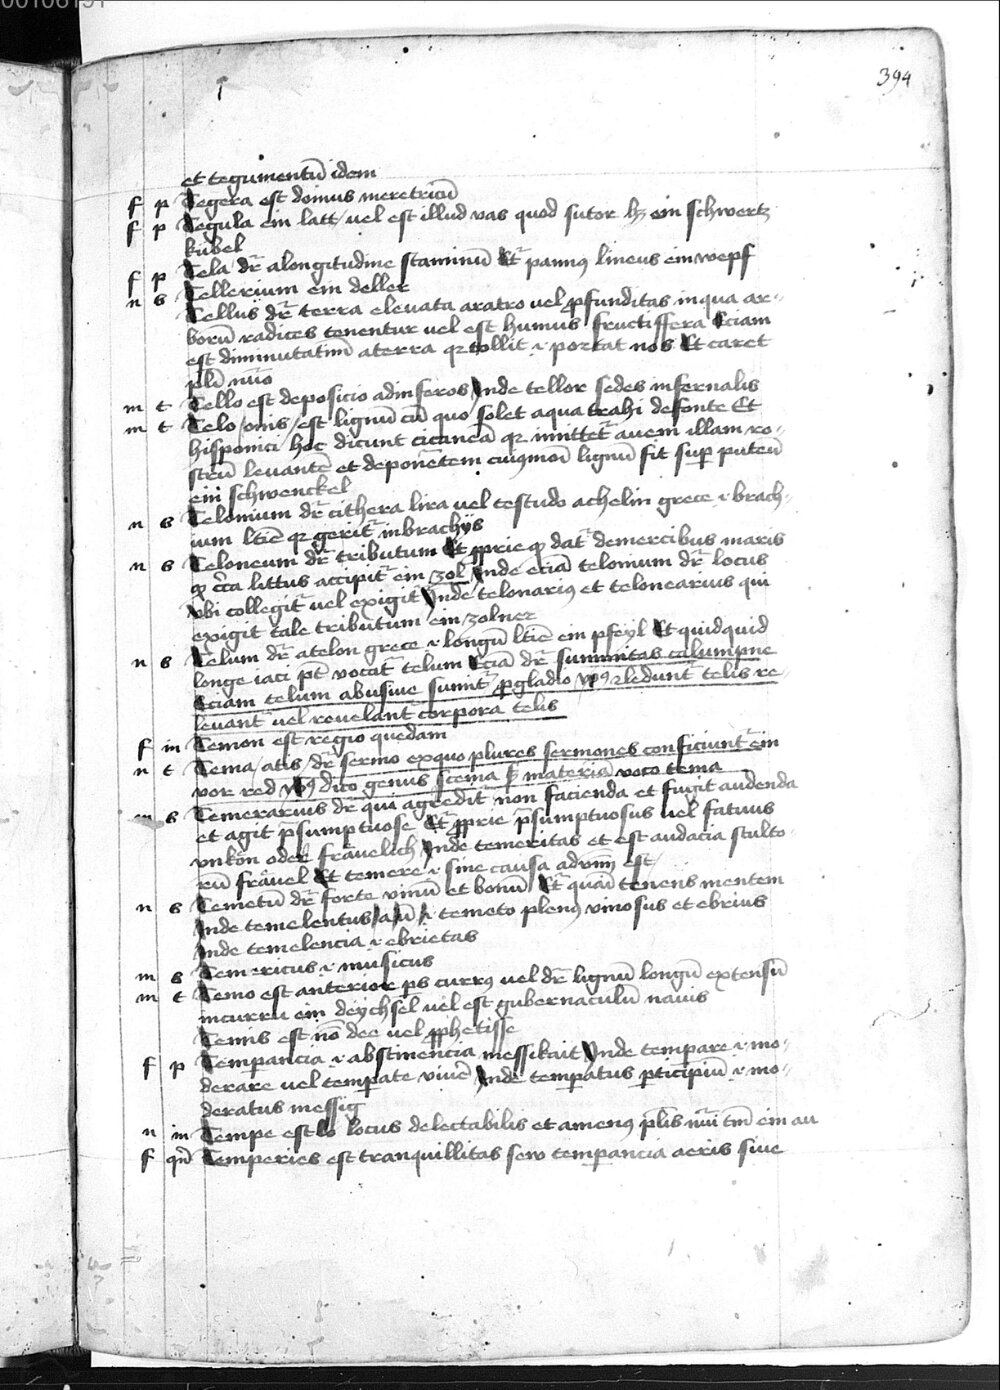 00108191
394
et tegumentū idem
f p Tegera est domus meretricū
f p Tegula ein latt / vel est illud vas quod sutor hꝫ ein schwertz
kubel
f p Tela dr̄ a longitudine staminū Et pannꝰ lineus ein wepf
n s Tellerium ein deller
Tellus dr̄ terra elevata aratro vel ꝓfunditas in qua ar-
borū radices tenentur vel est humus fructiffera Eciam
est diminutatim̄ a terra qꝛ tollit et portat nos Et caret
plī nūo
m t Tello est deposicio ad inferos Inde tellor sedes infernalis
m t Telo / onis / est lignū cū quo solet aqua trahi de fonte Et
hisponici hoc dicunt ciconeā qꝛ imittet̄ avem illam ro-
strū levantē et deponētem cuiꝰmōi lignū fit suꝑ puteū
ein schwenckel
n s Telonium dr̄ cithera lira vel testudo achelin grece brach-
ium ltīe qꝛ gerit̄ in brachijs
n s Teloneum dr̄ tributum Et ꝓprie ꝙ dat̄ de mercibus maris
ꝙ cc̄a littus accipit̄ ein zol Inde eciā telonium dr̄ locus
vbi collegit̄ vel exigit̄ Inde telonariꝰ et telonearius qui
exigit tale tributum ein zolner
n s Telum dr̄ a telon grece longū ltīe ein pfeyl Et quidquid
longe iaci pt̄ vocat̄ telum Eciā dr̄ summitas calumpne
Eciam telum abusiue sumit̄ ꝓ gladio ledunt̄ telis re-
levant̄ vel revelant̄ corpora telis
f in Temon est regio quedam
n t Tema / atis / dr̄ sermo ex quo plures sermones conficiunt̄ ein
vor red dico genus scema materiā voco tema
m s Temerarius dr̄ qui agredit̄ non facienda et fugit audenda
et agit p̄sumptuose Et ꝓprie p̄sumptuosus vel fatuus
vnkön oder frävelich Inde temeritas et est audacia stulto-
rū frävel Et temere sine causa adv̄m est
n s Temetū dr̄ forte vinū et bonū Et quāī tenens mentem
Inde temelentus / a / ū / temeto plenꝰ vinosus et ebrius
Inde temelencia ebrietas
m s Temericus musicus
m t Temo est anterior ꝑs currꝰ vel dr̄ lignū longū extensū
in curru ein deychsel vel est gubernaculū navis
Temis est nō dee vel ꝓphetisse
f p Temꝑancia abstinencia messikait Inde temꝑare mo-
derare vel temꝑate viuē Inde temꝑatus ꝑticipiū mo-
deratus messig
n in Tempe est locus delectabilis et amenꝰ plīs nūi tm̄ ein au
f qn̄ Temperies est tranquillitas sew temꝑancia aeris siue